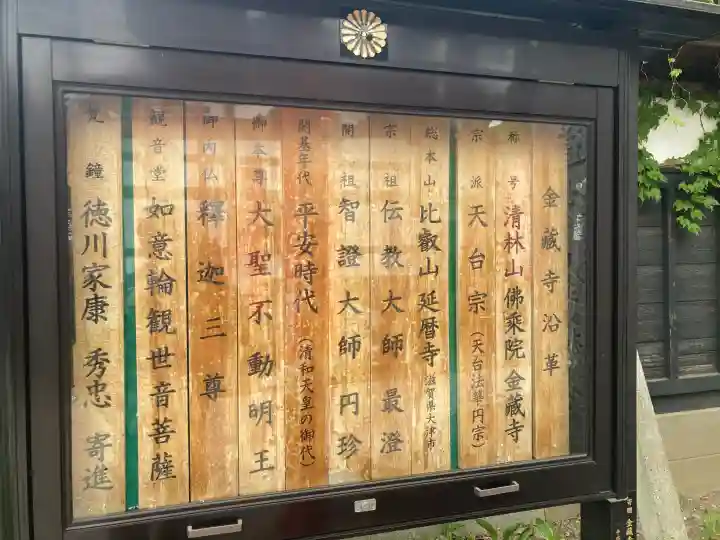 金蔵寺沿革
称号 清林山 佛乗院 金蔵寺
宗派 天台宗 (天台法華円宗)
総本山 比叡山 延暦寺 滋賀県大津市
宗祖 伝教大師 最澄
開祖 智證大師 円珍
開基年代 平安時代 (清和天皇の御代)
御本尊 大聖不動明王
御内仏 釋迦三尊
観音堂 如意輪観世音菩薩
梵鐘 徳川家康 秀忠 寄進